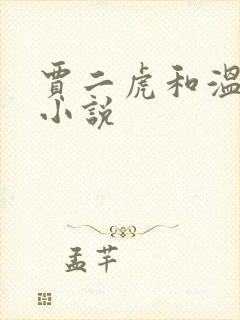 賈二虎和溫
小說
孟芊